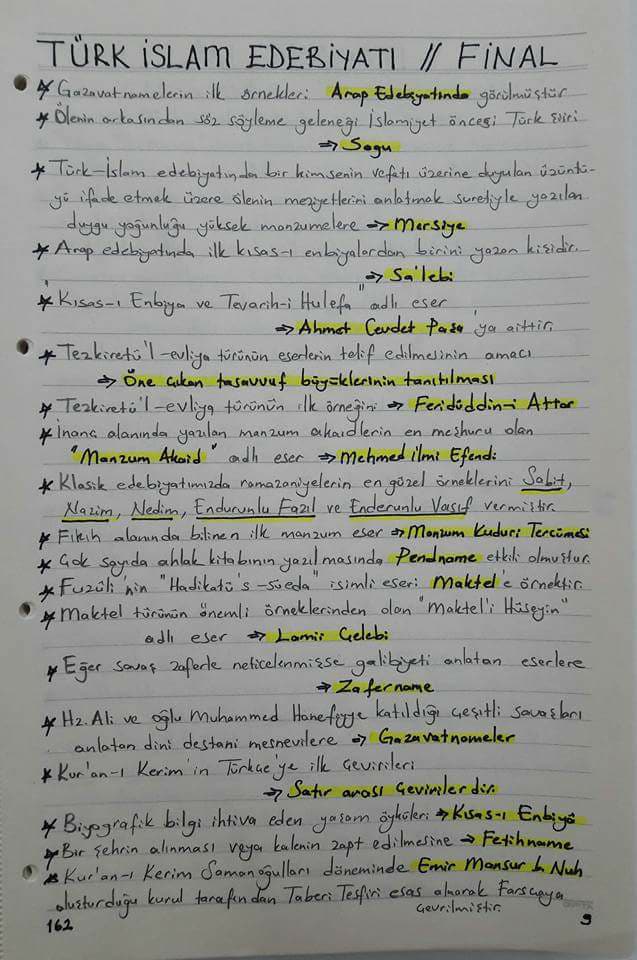 TÜRK İSLAM EDEBİYATI // FİNAL
* Gazavatnamelerin ilk örnekleri Arap Edebiyatında görülmüştür
* Ölenin arkasından söz söyleme geleneği İslamiyet öncesi Türk şiiri
⇒ Sagu
* Türk-İslam edebiyatında bir kimsenin vefatı üzerine duyulan üzüntü-
yü ifade etmek üzere ölenin meziyetlerini anlatmak suretiyle yazılan
duygu yoğunluğu yüksek manzumelere ⇒ Mersiye
* Arap edebiyatında ilk kısas-ı enbiyalardan birini yazan kişidir.
⇒ Sa'lebi
* "Kısas-ı Enbiya ve Tevarih-i Hulefa" adlı eser
⇒ Ahmet Cevdet Paşa'ya aittir.
* Tezkiretü'l-evliya türünün eserlerin telif edilmesinin amacı
⇒ Öne çıkan tasavvuf büyüklerinin tanıtılması
* Tezkiretü'l-evliya türünün ilk örneğini ⇒ Feridüddin-i Attar
* İnanç alanında yazılan manzum akaidlerin en meşhuru olan
"Manzum Akaid" adlı eser ⇒ Mehmed ilmi Efendi
* Klasik edebiyatımızda ramazaniyelerin en güzel örneklerini Sabit,
Nazim, Nedim, Endurunlu Fazıl ve Enderunlu Vasıf vermiştir.
* Fıkıh alanında bilinen ilk manzum eser ⇒ Manzum Kuduri Tercümesi
* Çok sayıda ahlak kitabının yazılmasında Pendname etkili olmuştur.
* Fuzüli'nin "Hadikatü's-süeda" isimli eseri Maktel'e örnektir.
* Maktel türünün önemli örneklerinden olan "Maktel'i Hüseyin"
adlı eser ⇒ Lamii Çelebi
* Eğer savaş zaferle neticelenmişse galibiyeti anlatan eserlere
⇒ Zafername
* Hz. Ali ve oğlu Muhammed Hanefiyye katıldığı çeşitli savaşları
anlatan dini destani mesnevilere ⇒ Gazavatnameler
* Kur'an-ı Kerim'in Türkçe'ye ilk çevirileri
⇒ Satır arası çevirilerdir.
* Biyografik bilgi ihtiva eden yaşam öyküleri ⇒ Kısas-ı Enbiyâ
* Bir şehrin alınması veya kalenin zapt edilmesine ⇒ Fetihname
* Kur'an-ı Kerim Samanoğulları döneminde Emir Mansur b. Nuh
oluşturduğu kurul tarafından Taberi Tesfiri esas alınarak Farsçaya
çevrilmiştir.
162 9